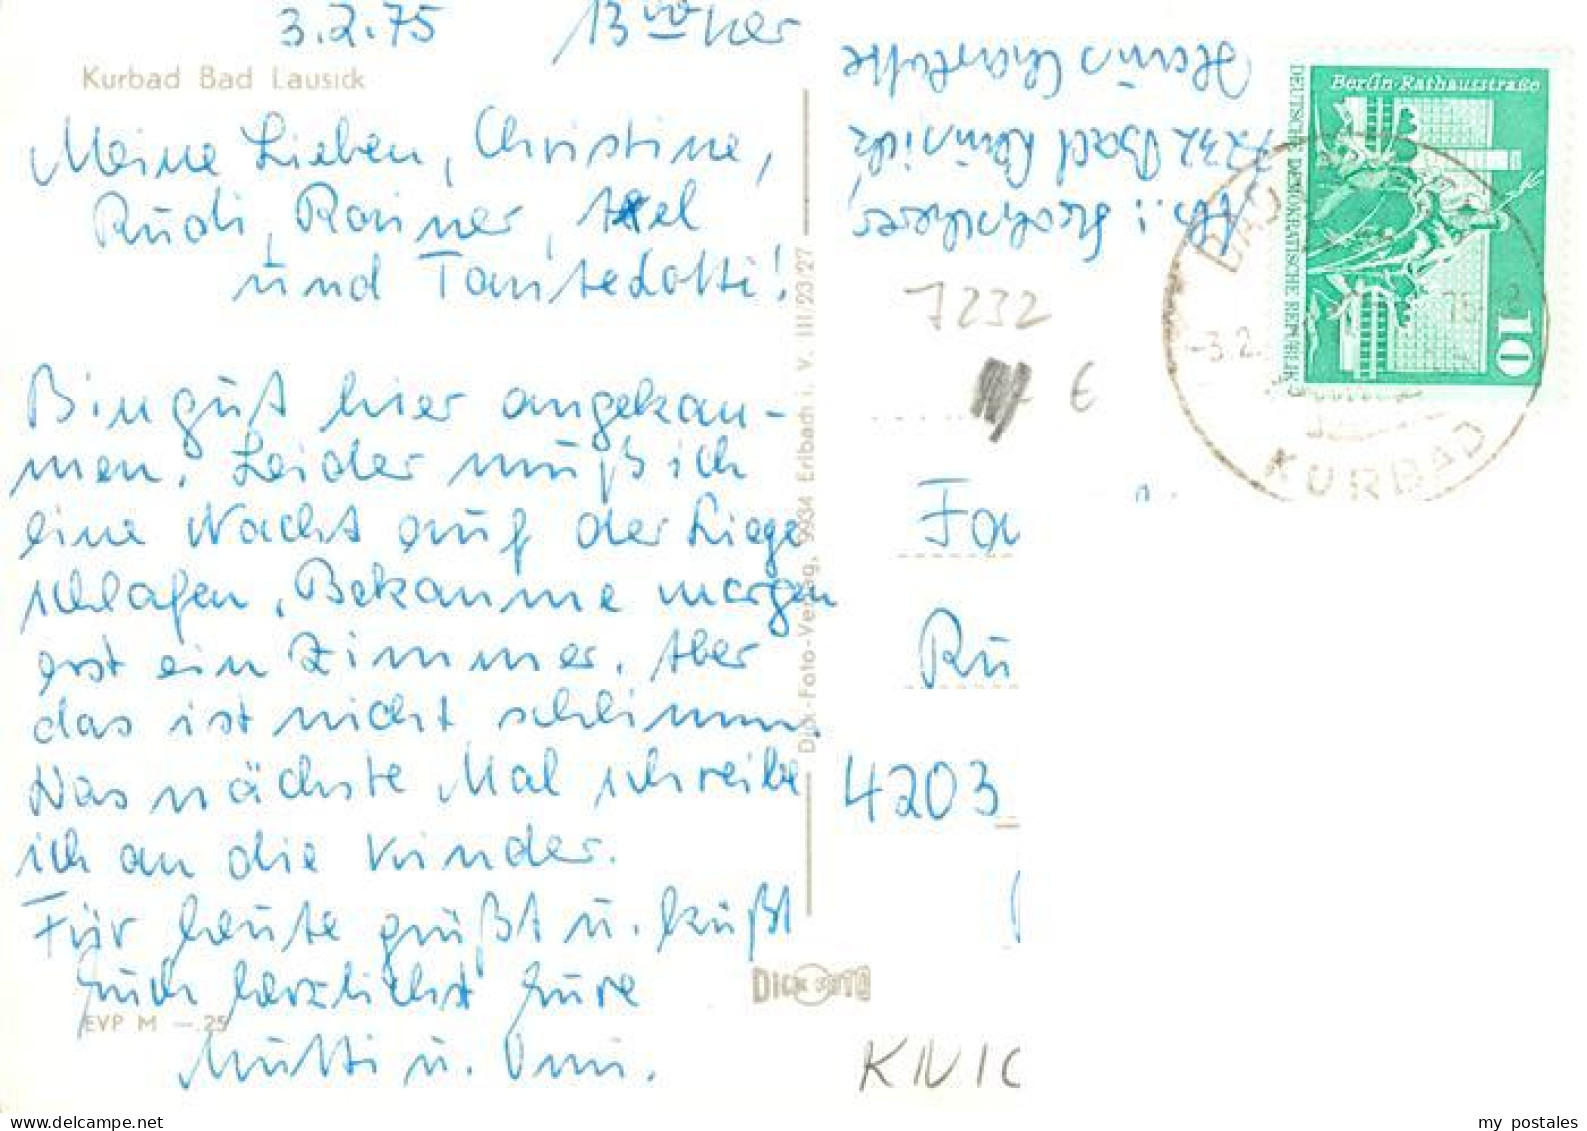 3.2.75 13 00 Uhr
Kurbad Bad Lausick
Meine Lieben, Christine,
Rudi, Rainer, Axel
und Tante Lotti!
Bin gut hier angekom-
men. Leider muß ich
eine Nacht auf der Liege
schlafen. Bekomme morgen
erst ein Zimmer. Aber
das ist nicht schlimm.
Das nächste Mal schreibe
ich an die Kinder.
Für heute grüßt u. küßt
Euch herzlichst Eure
Mutti u. Omi.
EVP M -.25
Dick-Foto-Verlag, 9934 Erlbach i. V. III/23/27
DICK FOTO
Abs.:
7232 Bad Lausick
Haus Charlotte
7232
€
Fa
Ru
4203
KNIC
Berlin-Rathausstraße
DEUTSCHE DEMOKRATISCHE REPUBLIK
10
BAD
-3.2.75
KURBAD
my postales